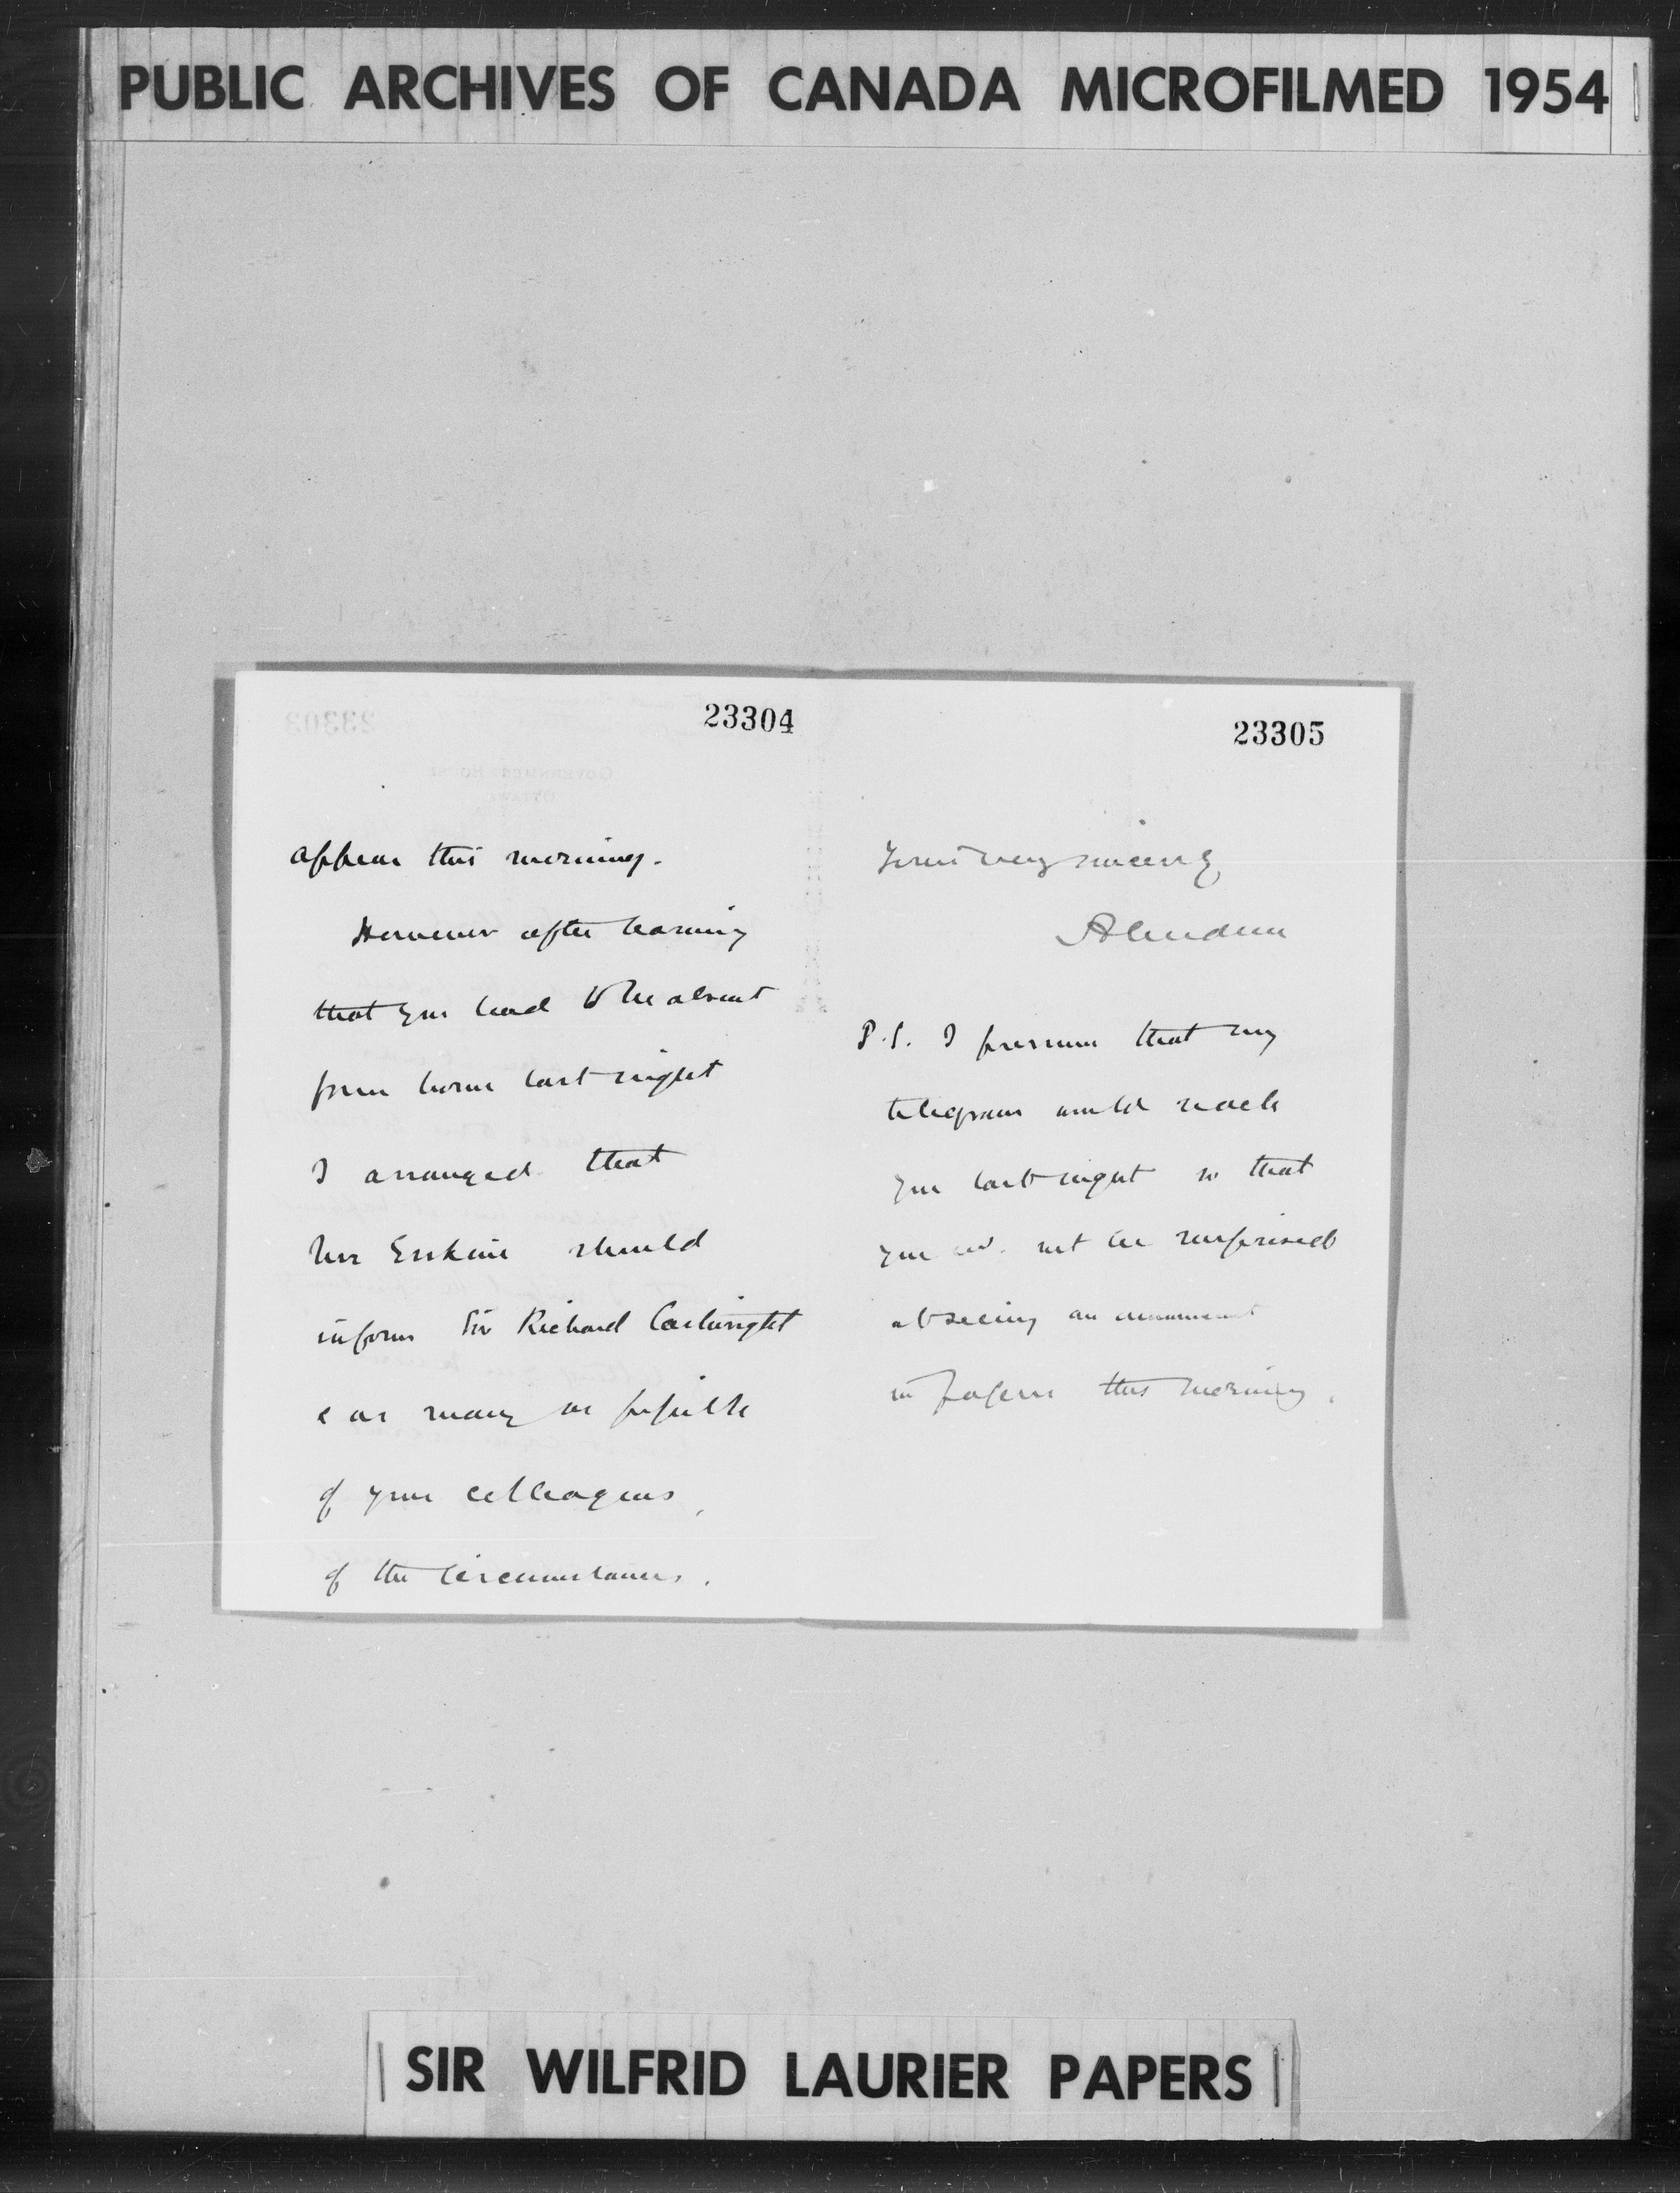 PUBLIC ARCHIVES OF CANADA MICROFILMED 1954
23304
appear this morning.
However after learning
that you had to be absent
from home last night
I arranged that
Mr Erskine should
inform Sir Richard Cartwright
& as many as possible
of your colleagues,
of the circumstances.
23305
Yours very sincerely
Aberdeen
P.S. I presume that my
telegram would reach
you last night so that
you wd. not be surprised
at seeing an announcement
in papers this morning.
SIR WILFRID LAURIER PAPERS